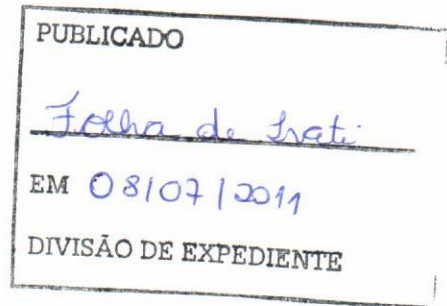 PUBLICADO
Folha de Irati
EM 08/07/2011
DIVISÃO DE EXPEDIENTE